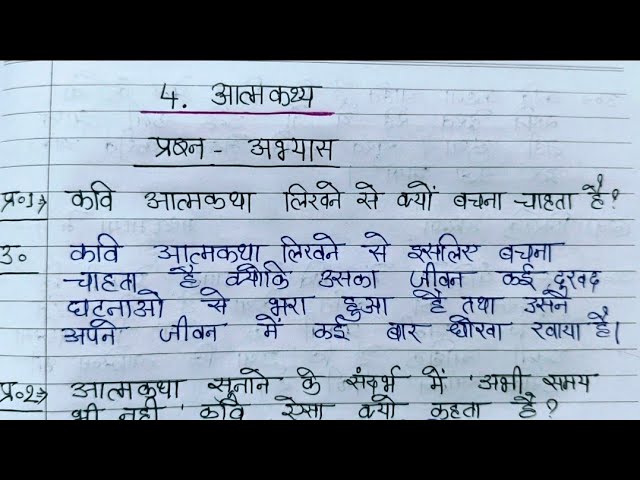 4. आत्मकथ्य
प्रश्न - अभ्यास
प्र०1⇒ कवि आत्मकथा लिखने से क्यों बचना चाहता है?
उ० कवि आत्मकथा लिखने से इसलिए बचना
चाहता है क्योंकि उसका जीवन कई दुखद
घटनाओ से भरा हुआ है तथा उसने
अपने जीवन में कई बार धोखा खाया है।
प्र०2⇒ आत्मकथा सुनाने के संदर्भ में 'अभी समय
भी नही' कवि ऐसा क्यो कहता है?